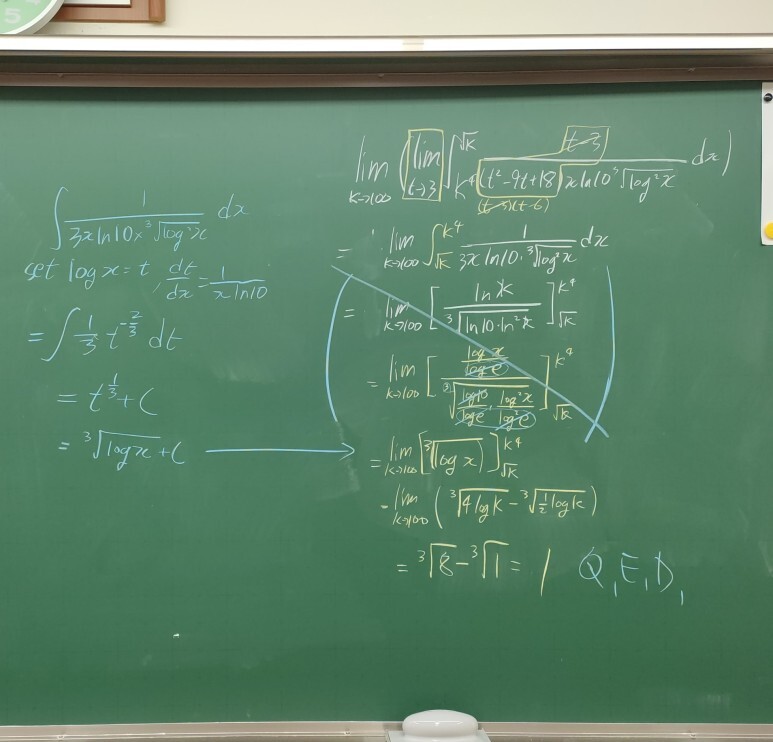 ∫ 1/(3x ln10 × ³√(log²x)) dx
set log x = t, dt/dx = 1/(x ln10)
= ∫ 1/3 t^(-2/3) dt
= t^(1/3) + C
= ³√(log x) + C
lim_(k→100) ( lim_(t→3) ∫_(k⁴)^(√k) (t-3)/((t²-9t+18) x ln10 ³√(log²x)) dx )
(t-3)(t-6)
= lim_(k→100) ∫_(√k)^(k⁴) 1/(3x ln10 · ³√(log²x)) dx
= lim_(k→100) [ ln x / ³√(ln10 · ln²x) ]_(√k)^(k⁴)
= lim_(k→100) [ (log x / log e) / ³√(log10/log e · log²x/log²e) ]_(√k)^(k⁴)
= lim_(k→100) [ ³√(log x) ]_(√k)^(k⁴)
= lim_(k→100) ( ³√(4 log k) - ³√(1/2 log k) )
= ³√8 - ³√1 = 1 Q,E,D,